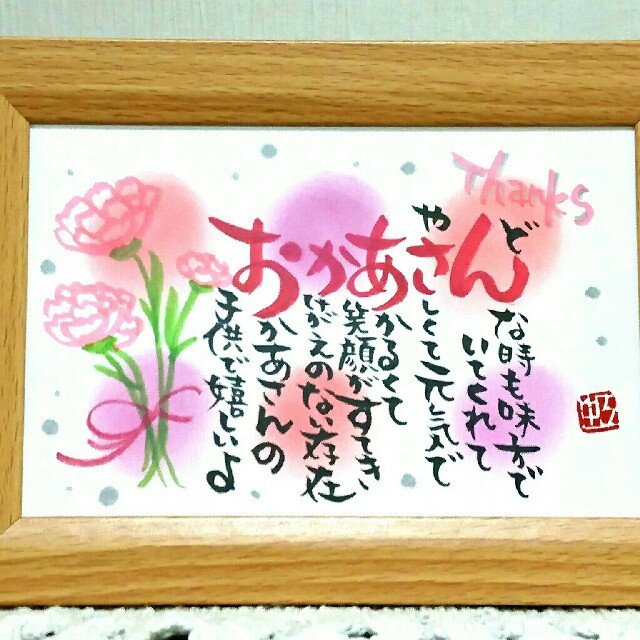 Thanks
どんな時も味方で
いてくれて
やさしくて元気で
あかるくて
笑顔がすてき
かけがえのない存在
おかあさんの
子供で嬉しいよ